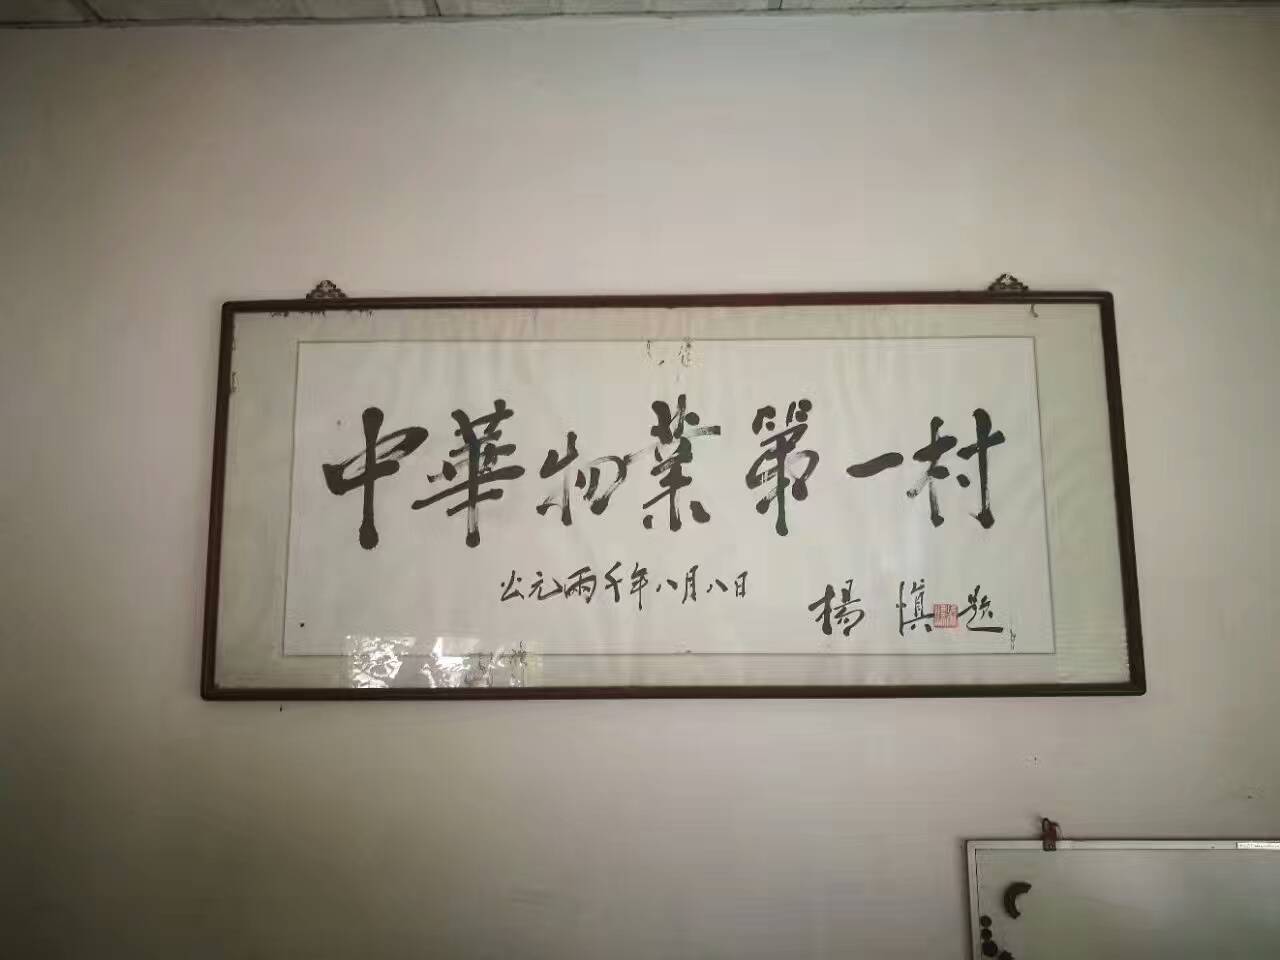 中華物業第一村
公元兩千年八月八日
楊慎題